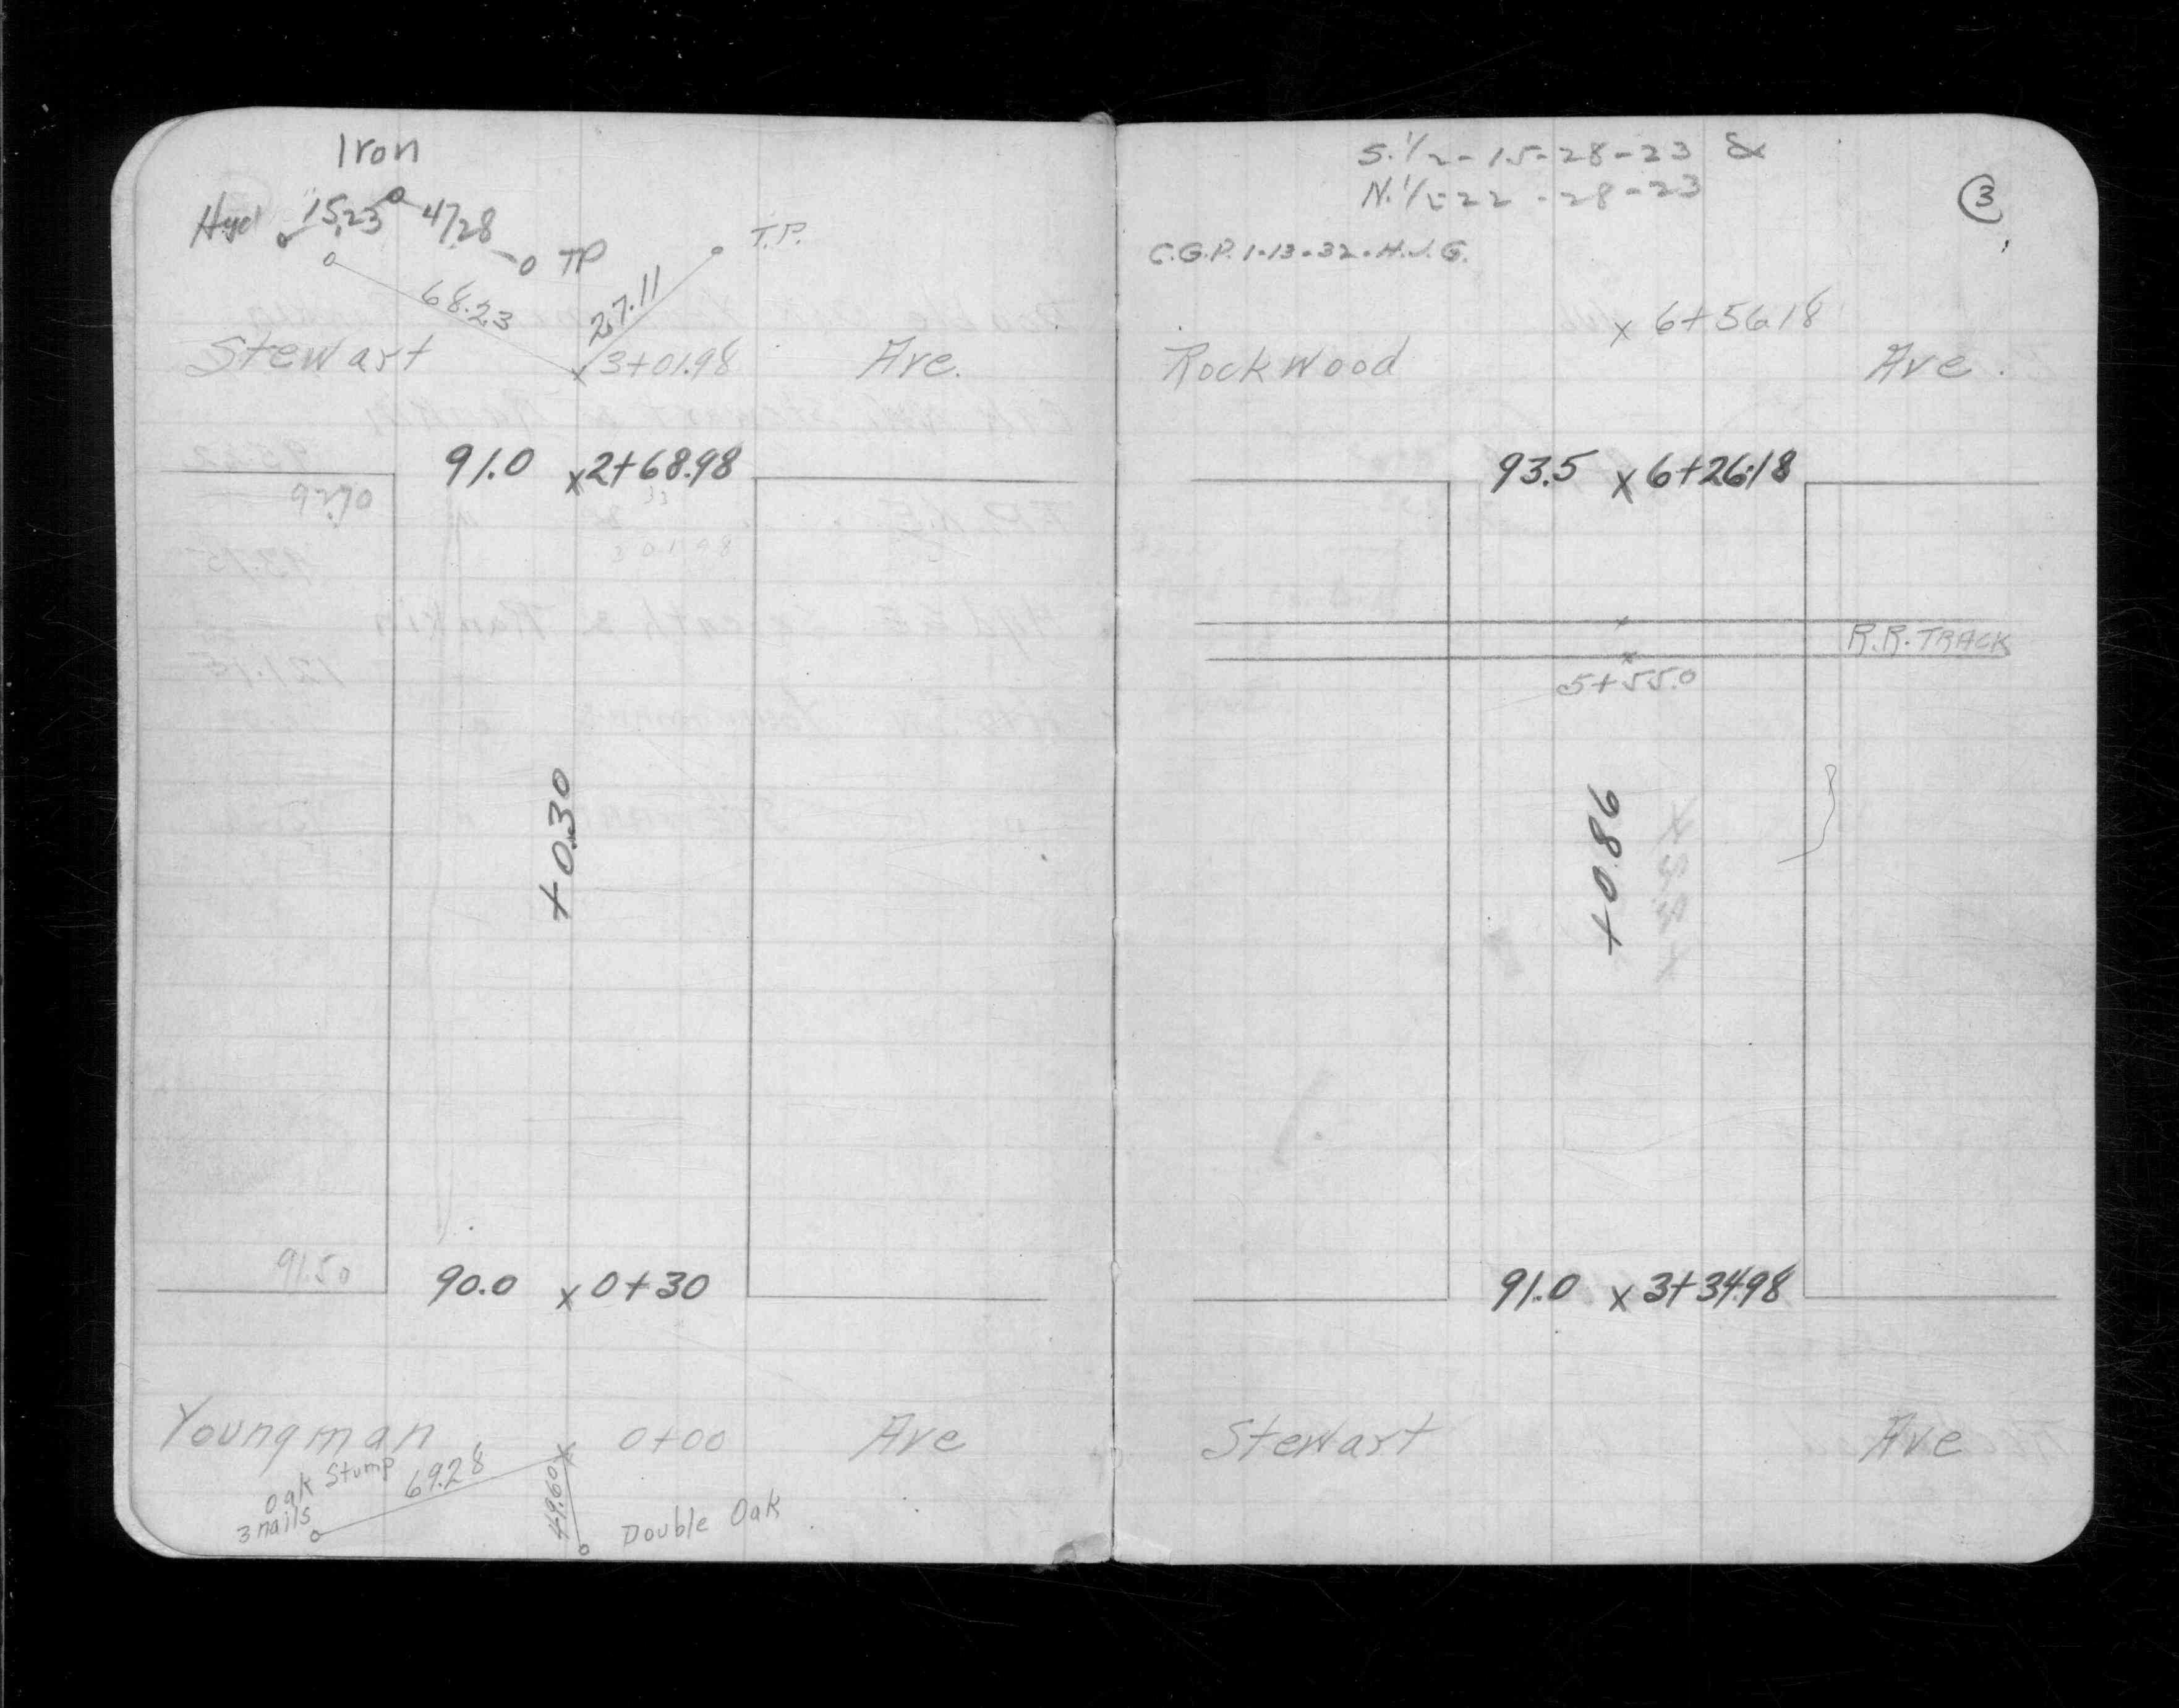 Iron
Hyd 15.23 47.28 TP
68.23 27.11 T.P.
Stewart 3+01.98 Ave.
91.0 x 2+68.98
33
92.70
30198
+0.30
91.50
90.0 x 0+30
Youngman 0+00 Ave
Oak Stump 69.28
3 nails
49.60
Double Oak
S. 1/2 - 15-28-23 &
N. 1/2 22 - 28-23
3
C.G.P. 1-13-32-H.J.G.
x 6+56.18
Rockwood Ave.
93.5 x 6+26.18
R.R. TRACK
5+55.0
+0.86
91.0 x 3+34.98
Stewart Ave